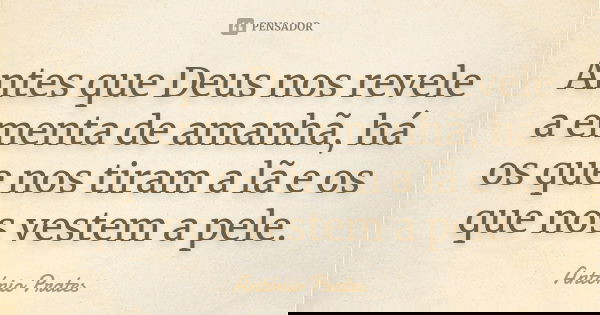 PENSADOR
Antes que Deus nos revele
a ementa de amanhã, há
os que nos tiram a lã e os
que nos vestem a pele.
António Prates